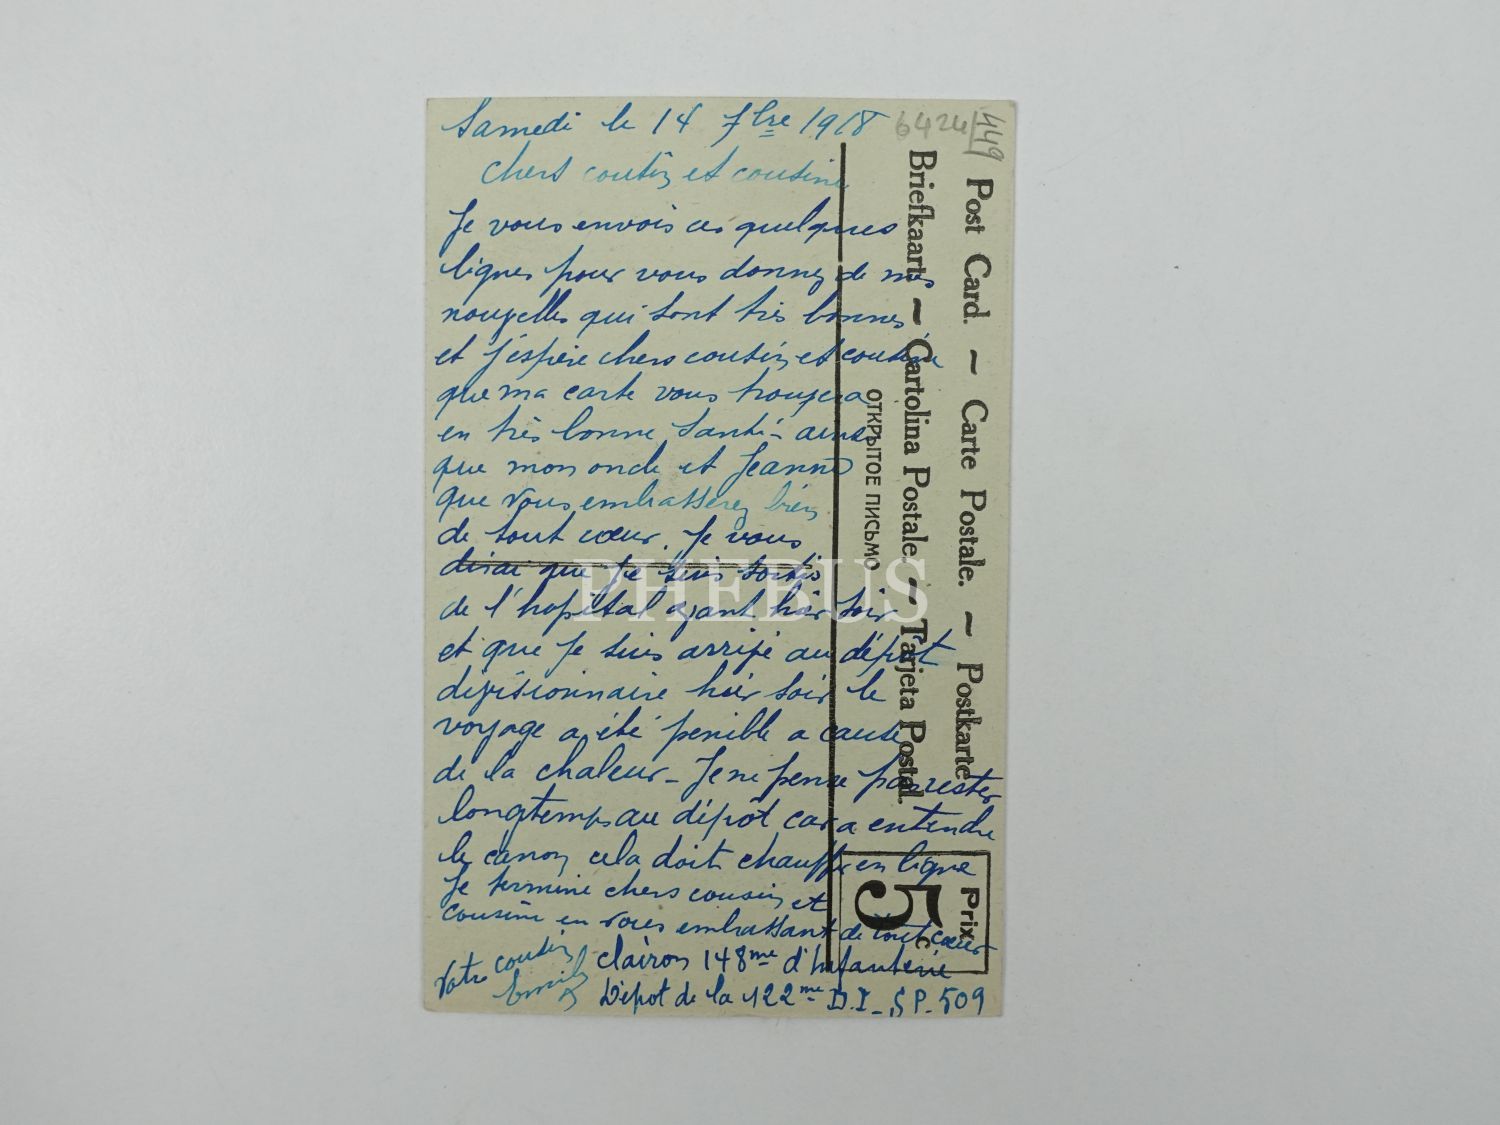 Samedi le 14 7bre 1918
6424
449
chers cousin et cousine
Je vous envois ces quelques
lignes pour vous donnez de mes
nouvelles qui sont très bonnes
et j'espère chers cousin et cousine
que ma carte vous trouvera
en très bonne santé - ainsi
que mon oncle et Jeanne
que vous embrasserez bien
de tout cœur. Je vous
dirai que je suis sortis
de l'hopital avant hier soir
et que je suis arrivé au dépot
divisionnaire hier soir le
voyage a été penible a cause
de la chaleur - Je ne pense pas rester
longtemps au dépot car a entendre
le canon cela doit chauffer en ligne
Je termine chers cousin et
cousine en vous embrassant de tout cœur
Votre cousin
Emile
clairon 148me d'Infanterie
Dépot de la 122me D.I - S P. 509
Post Card. ~ Carte Postale. ~ Postkarte
Briefkaart ~ Cartolina Postale. ~ Tarjeta Postal.
ОТКРЫТОЕ ПИСЬМО
Prix
5 c
PHEBUS